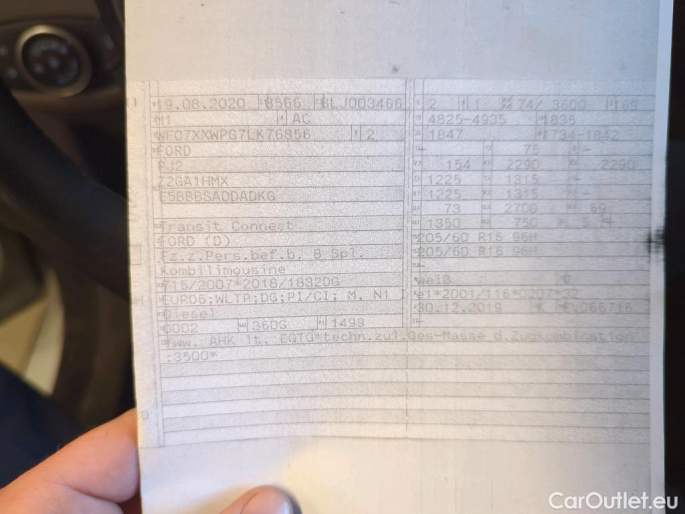 19.08.2020 8566 BLJ003466
M1 AC
WF07XXWPG7LK76856 2
FORD
PJ2
Z2GA1HMX
E5BBBSADDADKG
Transit Connect
FORD (D)
Fz.z.Pers.bef.b. 8 Spl.
Kombilimousine
715/2007*2018/1832DG
EURO6;WLTP;DG;PI/CI; M, N1
Diesel
0002 36DG 1499
*Ww. AHK lt. EGTG*techn.zul.Ges-Masse d.Zugkombination
:3500*
2 1 74/ 3600 169
4825-4935 1835
1847 1734-1842
- 75 -
154 2290 2290
1225 1315 -
1225 1315 -
73 2706 69
1350 750
205/60 R16 96H
205/60 R16 96H
-
weiß 0
e1*2001/116*0207*32
30.12.2019 K
-
CarOutlet.eu